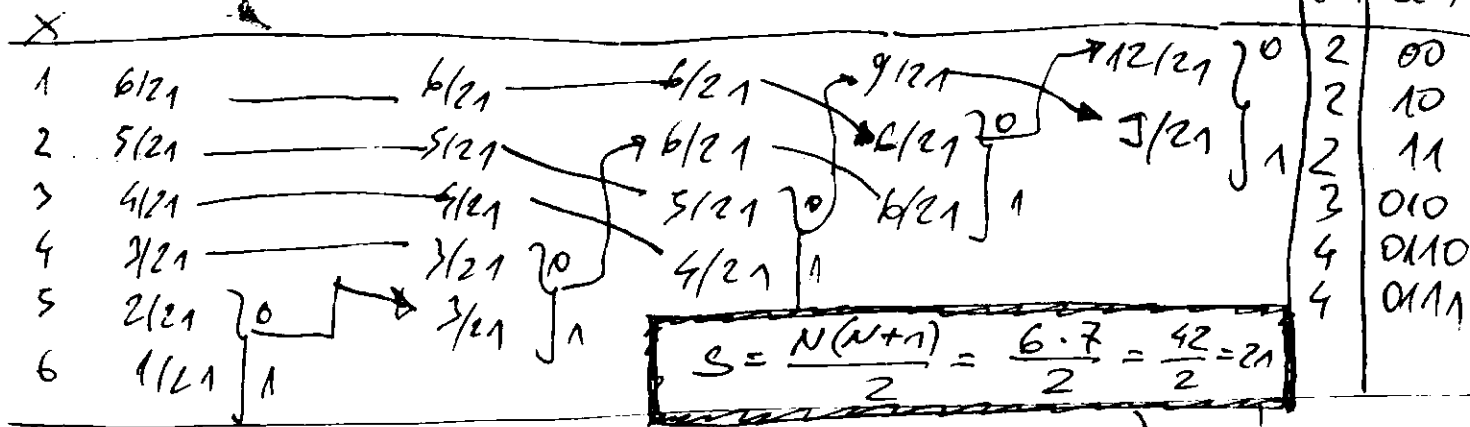 X
1 6/21 6/21 6/21 9/21 12/21 0 2 00
2 5/21 5/21 6/21 6/21 0 9/21 1 2 10
3 4/21 4/21 5/21 0 6/21 1 2 11
4 3/21 3/21 0 4/21 1 3 010
5 2/21 0 3/21 1 4 0110
6 1/21 1 4 0111
S = N(N+1)/2 = 6·7/2 = 42/2 = 21